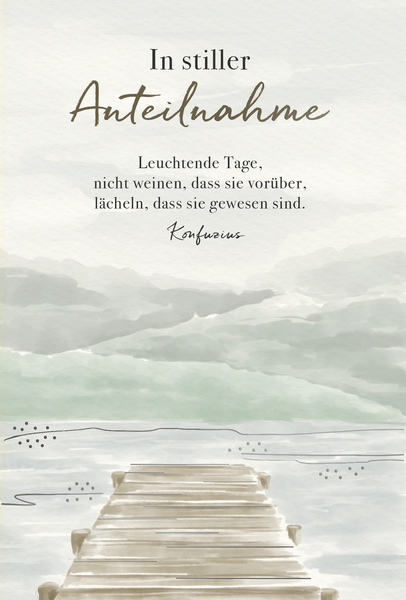 In stiller
Anteilnahme
Leuchtende Tage,
nicht weinen, dass sie vorüber,
lächeln, dass sie gewesen sind.
Konfuzius